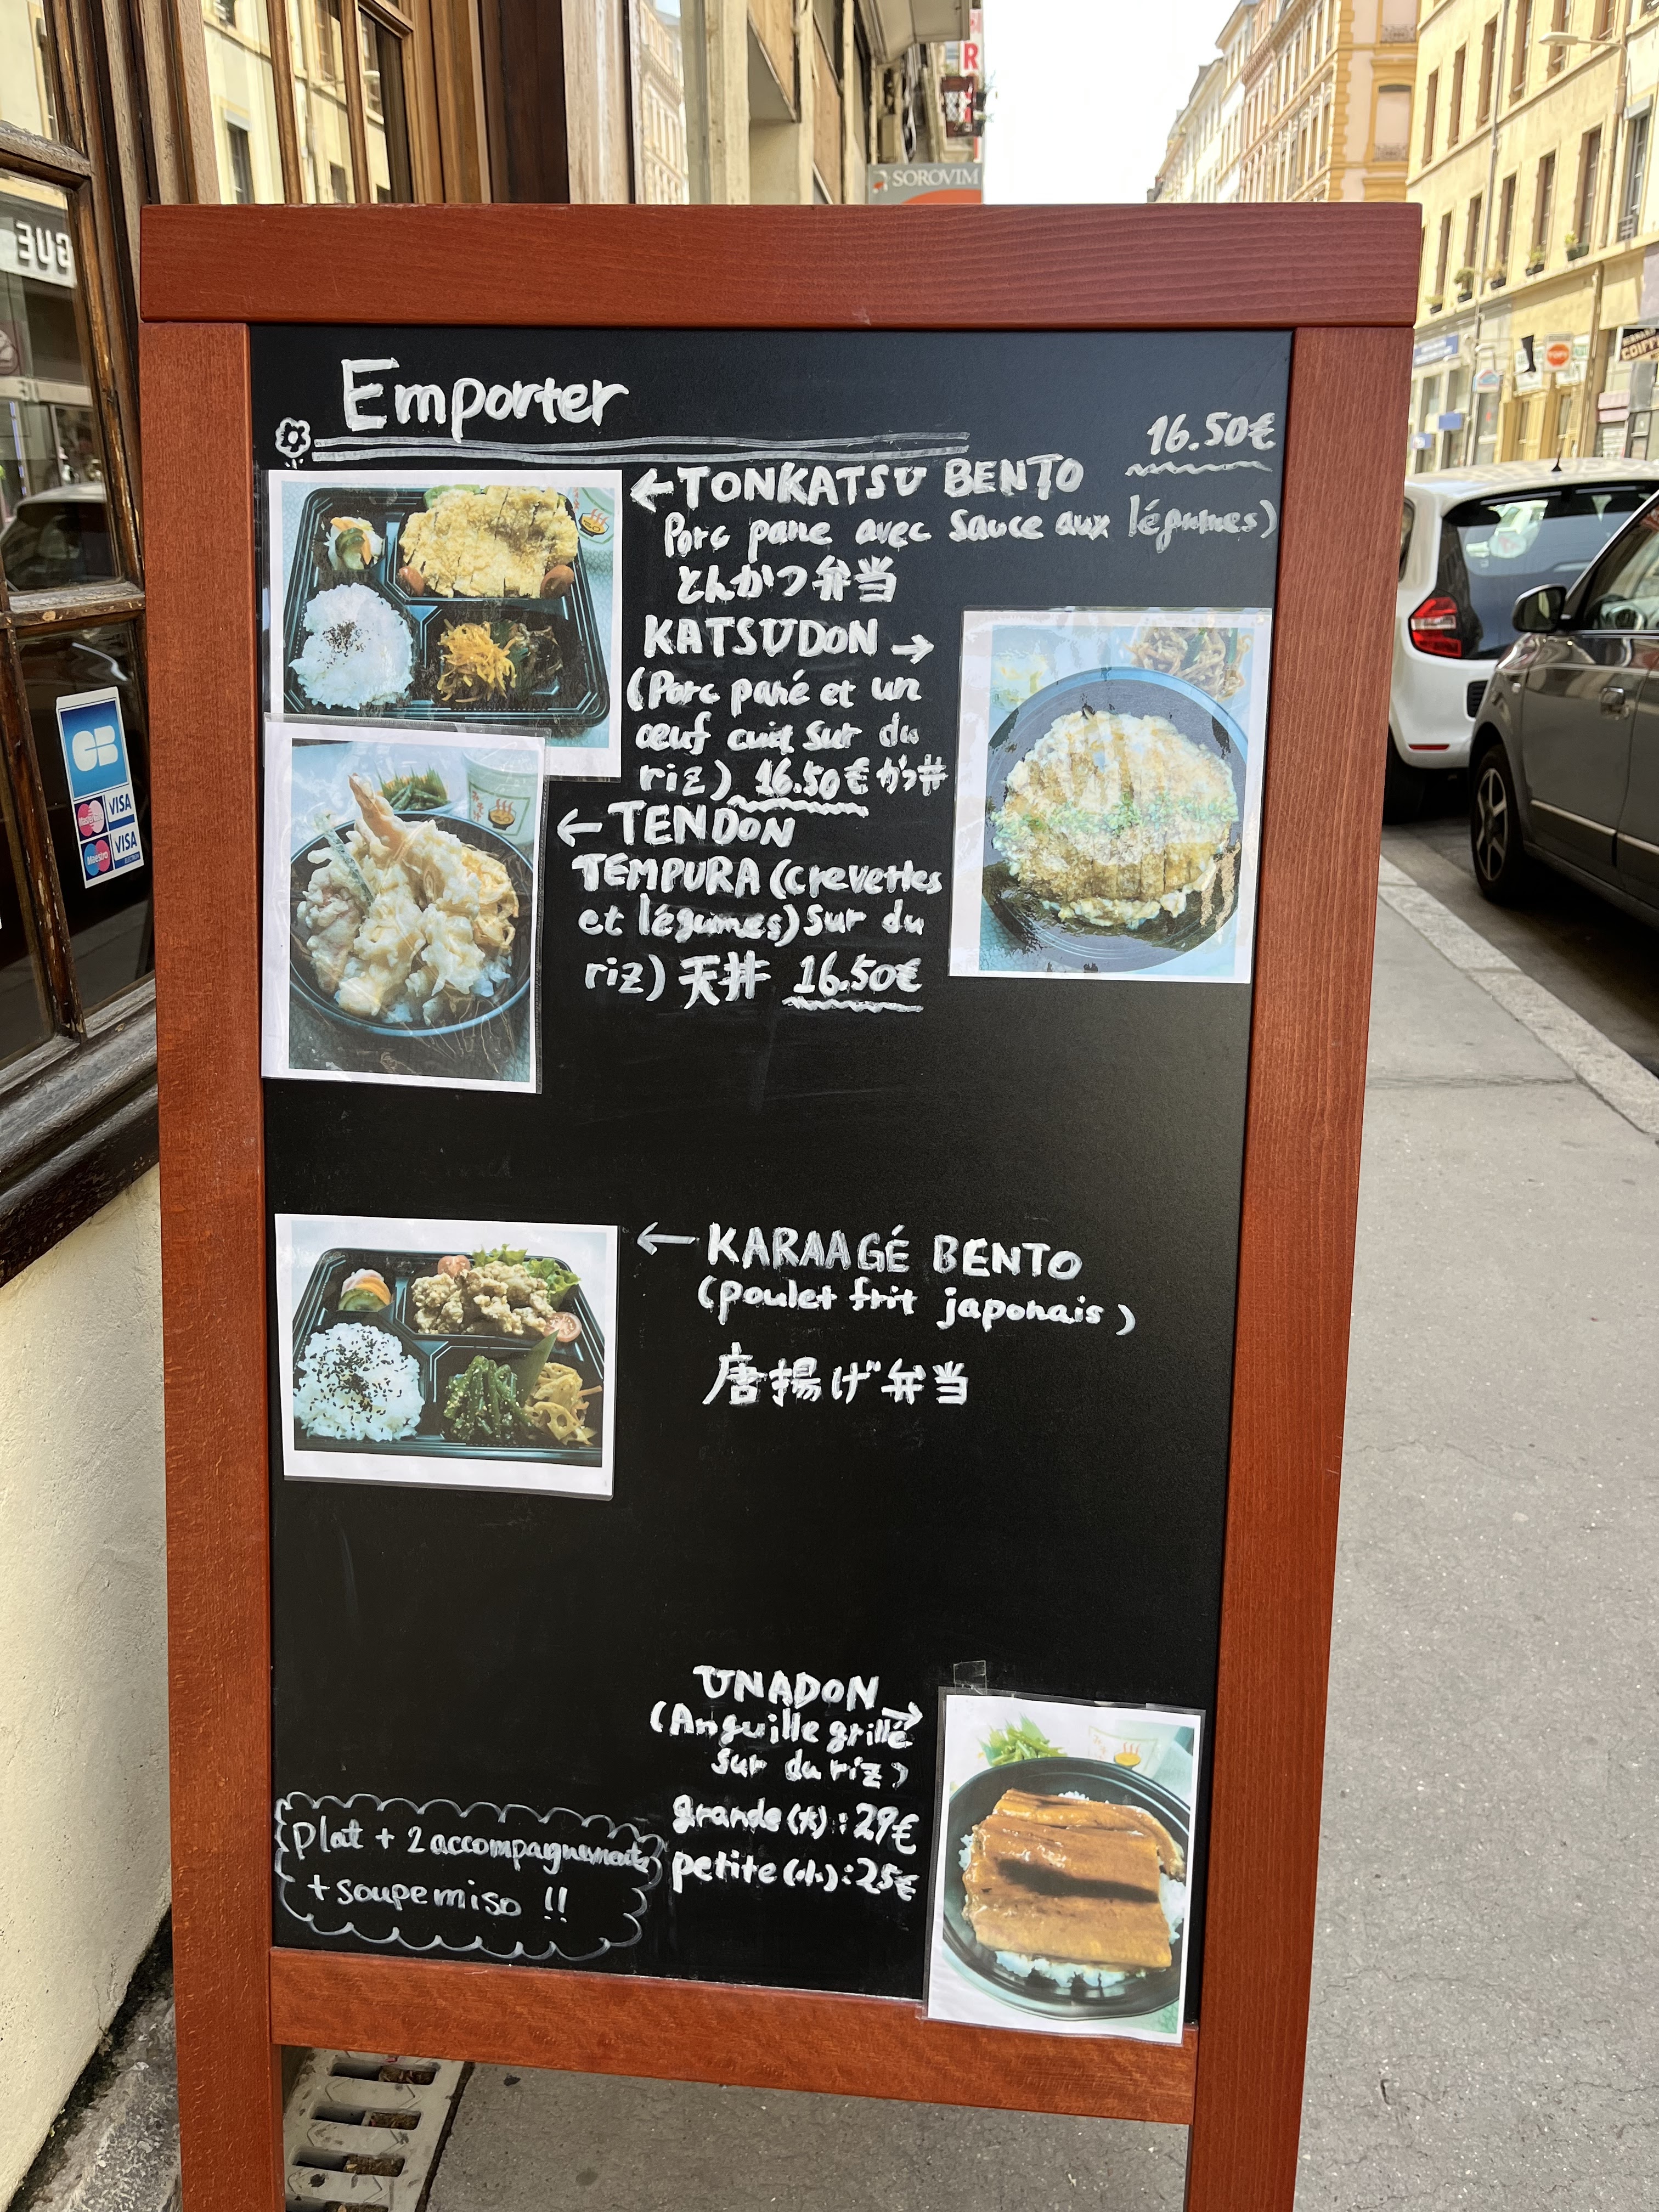 SOROVIM
Emporter
16.50€
←TONKATSU BENTO
Porc pane avec Sauce aux légumes)
とんかつ弁当
KATSUDON →
(Porc pané et un
œuf cuit sur du
riz) 16.50€ かつ丼
←TENDON
TEMPURA (crevettes
et légumes) sur du
riz) 天丼 16.50€
← KARAAGÉ BENTO
(poulet frit japonais)
唐揚げ弁当
UNADON
(Anguille grillé →
sur du riz)
grande (大) : 29€
petite (小) : 25€
plat + 2 accompagnements
+ soupe miso !!
CB
VISA
Maestro
VISA